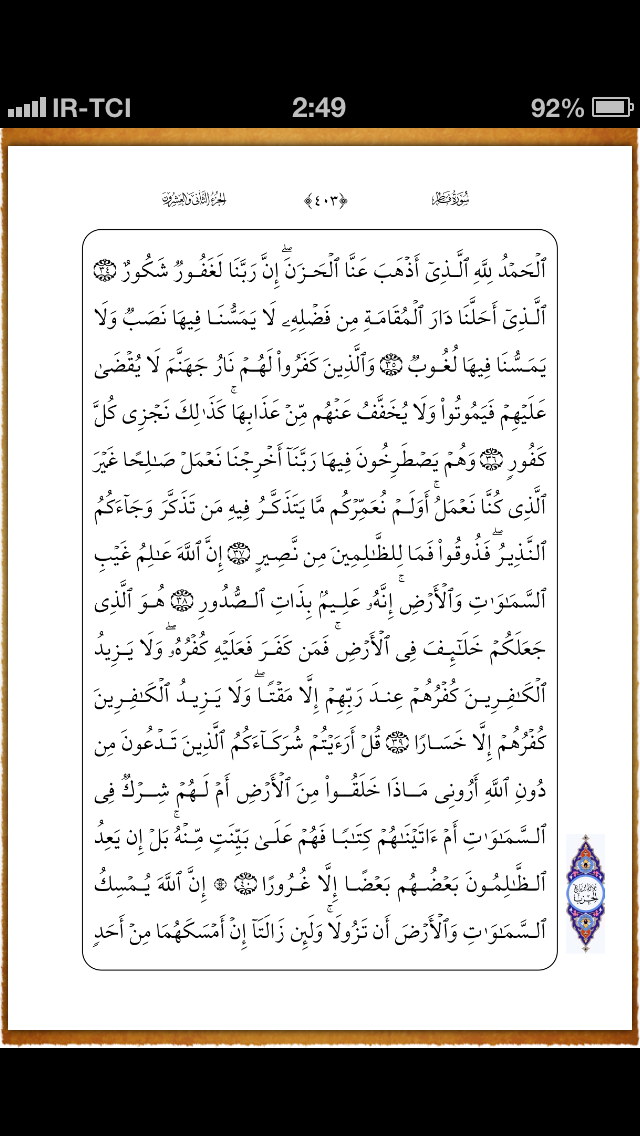 IR-TCI 2:49 92%
سُورَةُ فَاطِر ﴿٤٠٣﴾ الجُزءُ الثَّانِي وَالعِشرُونَ
ٱلۡحَمۡدُ لِلَّهِ ٱلَّذِيٓ أَذۡهَبَ عَنَّا ٱلۡحَزَنَۖ إِنَّ رَبَّنَا لَغَفُورٞ شَكُورٌ ٣٤
ٱلَّذِيٓ أَحَلَّنَا دَارَ ٱلۡمُقَامَةِ مِن فَضۡلِهِۦ لَا يَمَسُّنَا فِيهَا نَصَبٞ وَلَا
يَمَسُّنَا فِيهَا لُغُوبٞ ٣٥ وَٱلَّذِينَ كَفَرُواْ لَهُمۡ نَارُ جَهَنَّمَ لَا يُقۡضَىٰ
عَلَيۡهِمۡ فَيَمُوتُواْ وَلَا يُخَفَّفُ عَنۡهُم مِّنۡ عَذَابِهَاۚ كَذَٰلِكَ نَجۡزِي كُلَّ
كَفُورٖ ٣٦ وَهُمۡ يَصۡطَرِخُونَ فِيهَا رَبَّنَآ أَخۡرِجۡنَا نَعۡمَلۡ صَٰلِحًا غَيۡرَ
ٱلَّذِي كُنَّا نَعۡمَلُۚ أَوَلَمۡ نُعَمِّرۡكُم مَّا يَتَذَكَّرُ فِيهِ مَن تَذَكَّرَ وَجَآءَكُمُ
ٱلنَّذِيرُۖ فَذُوقُواْ فَمَا لِلظَّٰلِمِينَ مِن نَّصِيرٍ ٣٧ إِنَّ ٱللَّهَ عَٰلِمُ غَيۡبِ
ٱلسَّمَٰوَٰتِ وَٱلۡأَرۡضِۚ إِنَّهُۥ عَلِيمُۢ بِذَاتِ ٱلصُّدُورِ ٣٨ هُوَ ٱلَّذِي
جَعَلَكُمۡ خَلَٰٓئِفَ فِي ٱلۡأَرۡضِۚ فَمَن كَفَرَ فَعَلَيۡهِ كُفۡرُهُۥۖ وَلَا يَزِيدُ
ٱلۡكَٰفِرِينَ كُفۡرُهُمۡ عِندَ رَبِّهِمۡ إِلَّا مَقۡتٗاۖ وَلَا يَزِيدُ ٱلۡكَٰفِرِينَ
كُفۡرُهُمۡ إِلَّا خَسَارٗا ٣٩ قُلۡ أَرَءَيۡتُمۡ شُرَكَآءَكُمُ ٱلَّذِينَ تَدۡعُونَ مِن
دُونِ ٱللَّهِ أَرُونِي مَاذَا خَلَقُواْ مِنَ ٱلۡأَرۡضِ أَمۡ لَهُمۡ شِرۡكٞ فِي
ٱلسَّمَٰوَٰتِ أَمۡ ءَاتَيۡنَٰهُمۡ كِتَٰبٗا فَهُمۡ عَلَىٰ بَيِّنَتٖ مِّنۡهُۚ بَلۡ إِن يَعِدُ
ٱلظَّٰلِمُونَ بَعۡضُهُم بَعۡضًا إِلَّا غُرُورًا ٤٠ ۞ إِنَّ ٱللَّهَ يُمۡسِكُ
ٱلسَّمَٰوَٰتِ وَٱلۡأَرۡضَ أَن تَزُولَاۚ وَلَئِن زَالَتَآ إِنۡ أَمۡسَكَهُمَا مِنۡ أَحَدٖ